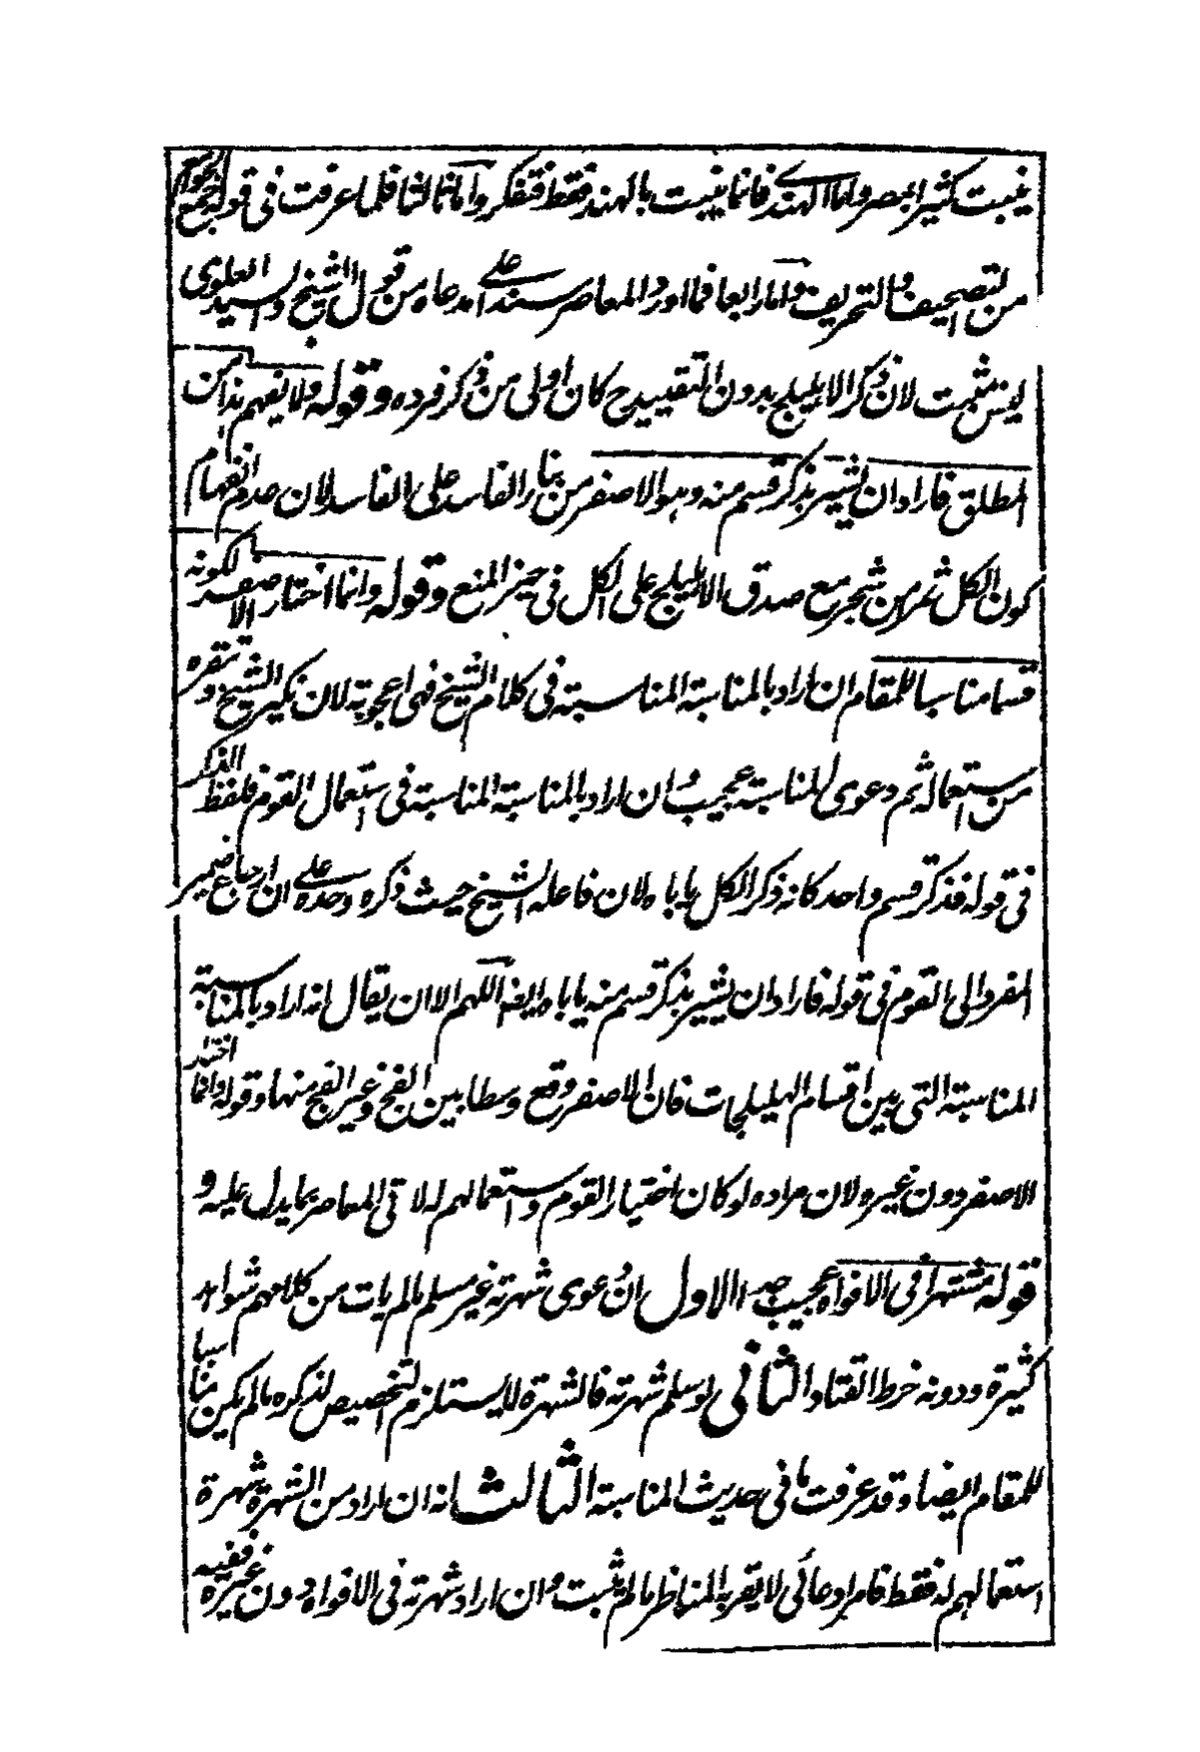 ينبت كثيرا بمصر واما الهندي فانما ينبت بالهند فقط فتفكر واما ثالثا فلما عرفت في قوله الجمع
من التصحيف والتحريف واما رابعا فما اورد المعاصر سندا على مدعاه من قول الشيخ والسيد العلوي
ليس بمثبت لان ذكر الاهليلج بدون التقييد ح كان اولى من ذكر فرده وقوله ولا يفهم هذا من
المطلق فاراد ان يشير بذكر قسم منه وهو الاصفر من بناء الفاسد على الفاسد لان عدم انفهام
كون الكل ثمر من شجر مع صدق الاهليلج على الكل في حيز المنع وقوله وانما اختار الاصفر لكونه
قسما مناسبا للمقام ان اراد بالمناسبة المناسبة في كلام الشيخ فهي اعجوبة لان نكير الشيخ وتنفره
من استعماله ثم دعوى المناسبة عجيب وان اراد بالمناسبة المناسبة في استعمال القوم فلفظ الذكر
في قوله فذكر قسم واحد كانه ذكر الكل ياباه لان فاعله الشيخ حيث ذكره وحده على ان ارجاع ضمير
المفرد الى القوم في قوله فاراد ان يشير بذكر قسم منه ياباه ايضا اللهم الا ان يقال انه اراد بالمناسبة
المناسبة التي بين اقسام الهليلجات فان الاصفر وقع وسطا بين الفج وغير الفج منها وقوله وانما اختار
الاصفر دون غيره لان مراده لو كان اختيار القوم واستعمالهم له لاتى المعاصر بما يدل عليه و
قوله مشتهرا في الافواه عجيب جدا الاول ان دعوى شهرته غير مسلم ما لم يات من كلامهم شواهد
كثيرة ودونه خرط القتاد الثاني لو سلم شهرته فالشهرة لا يستلزم التخصيص لذكره ما لم يكن مناسبا
للمقام ايضا وقد عرفت ما في حديث المناسبة الثالث انه ان اراد من الشهرة شهرة
استعمالهم له فقط فامر ادعائي لا يقر به المناظر ما لم يثبت وان اراد شهرته في الافواه دون غيره ففيه